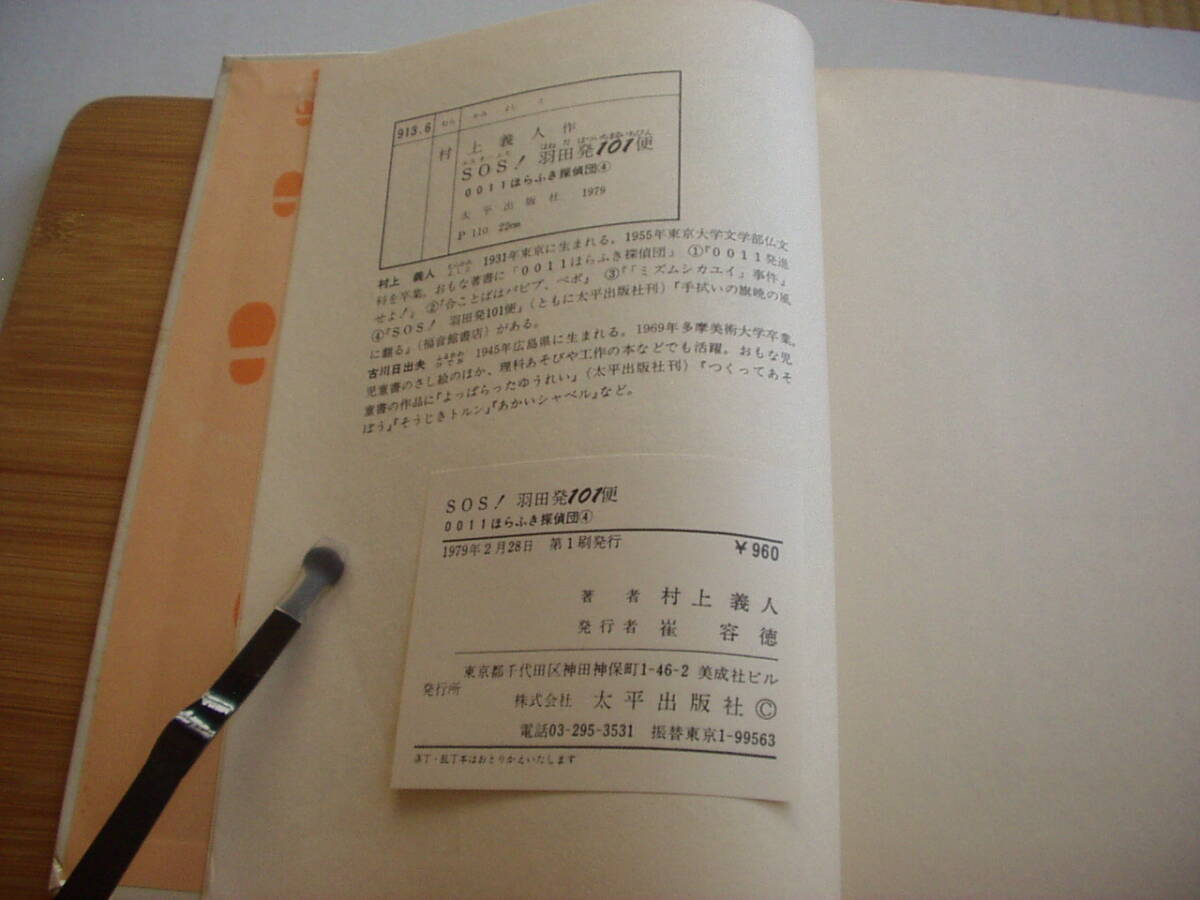 913.6
むら かみ よし と
村上義人作
SOS! 羽田発101便
0011ほらふき探偵団④
太平出版社 1979
P 110 22cm
村上 義人 1931年東京に生まれる。1955年東京大学文学部仏文
科を卒業。おもな著書に「0011ほらふき探偵団」①『0011発進
せよ!』②『合ことばはパピプ、ペポ』③『「ミズムシカユイ」事件』
④『SOS! 羽田発101便』(ともに太平出版社刊)『手拭いの旗暁の風
に翻る』(福音館書店)がある。
古川日出夫 ふるかわ ひでお 1945年広島県に生まれる。1969年多摩美術大学卒業。
児童書のさし絵のほか、理科あそびや工作の本などでも活躍。おもな児
童書の作品に『よっぱらったゆうれい』(太平出版社刊)『つくってあそ
ぼう』『そうじきトルン』『あかいシャベル』など。
SOS! 羽田発101便
0011ほらふき探偵団④
1979年2月28日 第1刷発行 ¥960
著者 村上義人
発行者 崔容徳
東京都千代田区神田神保町1-46-2 美成社ビル
発行所 株式会社 太平出版社©
電話03-295-3531 振替東京1-99563
落丁・乱丁本はおとりかえいたします